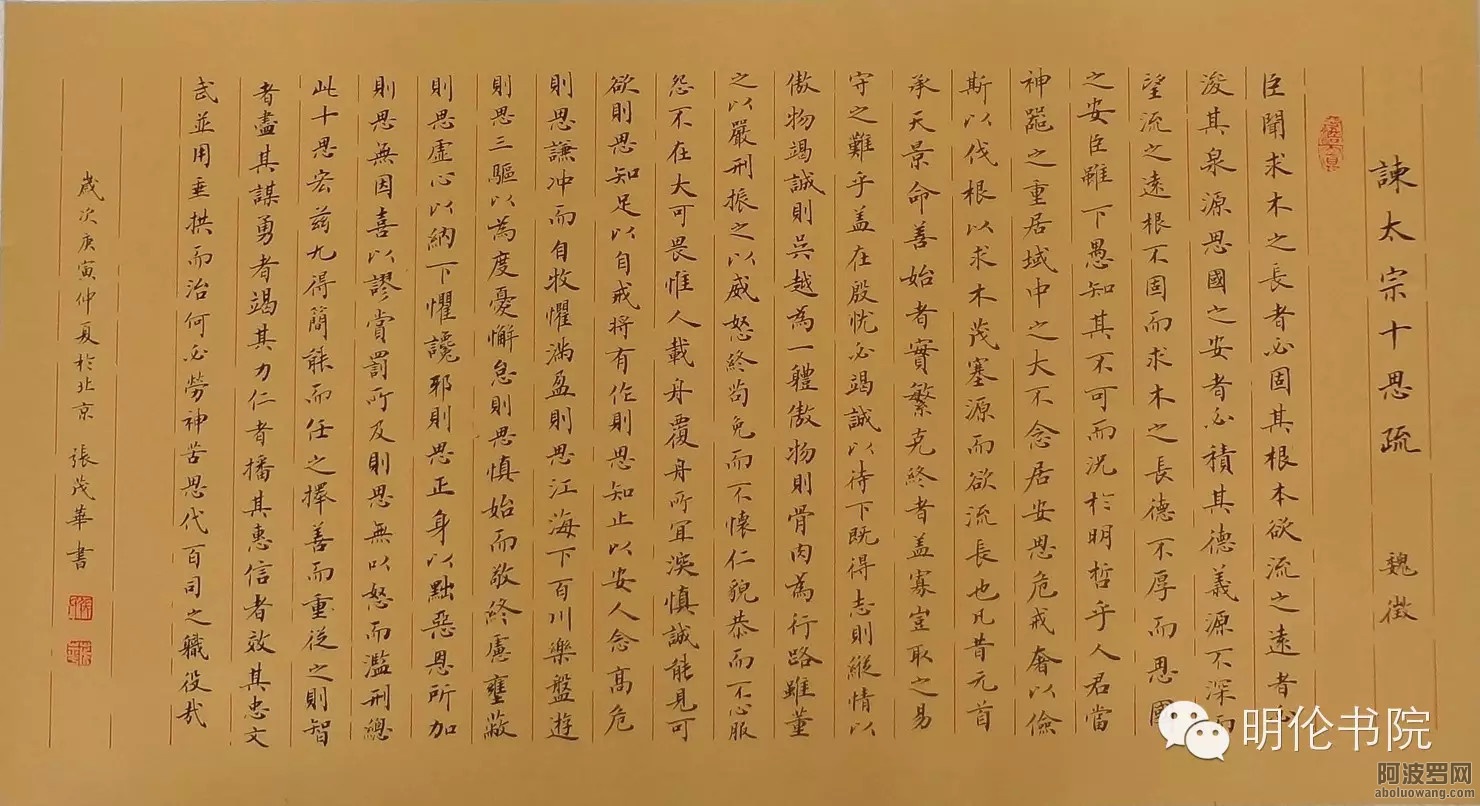 諫太宗十思疏 魏徵
臣聞求木之長者必固其根本欲流之遠者必
浚其泉源思國之安者必積其德義源不深而
望流之遠根不固而求木之長德不厚而思國
之安臣雖下愚知其不可而況於明哲乎人君當
神器之重居域中之大不念居安思危戒奢以儉
斯以伐根以求木茂塞源而欲流長也凡昔元首
承天景命善始者實繁克終者盖寡豈取之易
守之難乎盖在殷憂必竭誠以待下既得志則縱情以
傲物竭誠則吳越為一體傲物則骨肉為行路雖董
之以嚴刑振之以威怒終苟免而不懷仁貌恭而不心服
怨不在大可畏惟人載舟覆舟所宜深慎誠能見可
欲則思知足以自戒将有作則思知止以安人念高危
則思謙冲而自牧懼滿盈則思江海下百川樂盤遊
則思三驅以為度憂懈怠則思慎始而敬終慮壅蔽
則思虛心以納下懼讒邪則思正身以黜惡恩所加
則思無因喜以謬賞罰所及則思無以怒而濫刑總
此十思宏茲九得簡能而任之擇善而從之則智
者盡其謀勇者竭其力仁者播其惠信者效其忠文
武並用垂拱而治何必勞神苦思代百司之職役哉
歲次庚寅仲夏於北京 張茂華書
明伦书院
阿波罗网
aboluowang.com